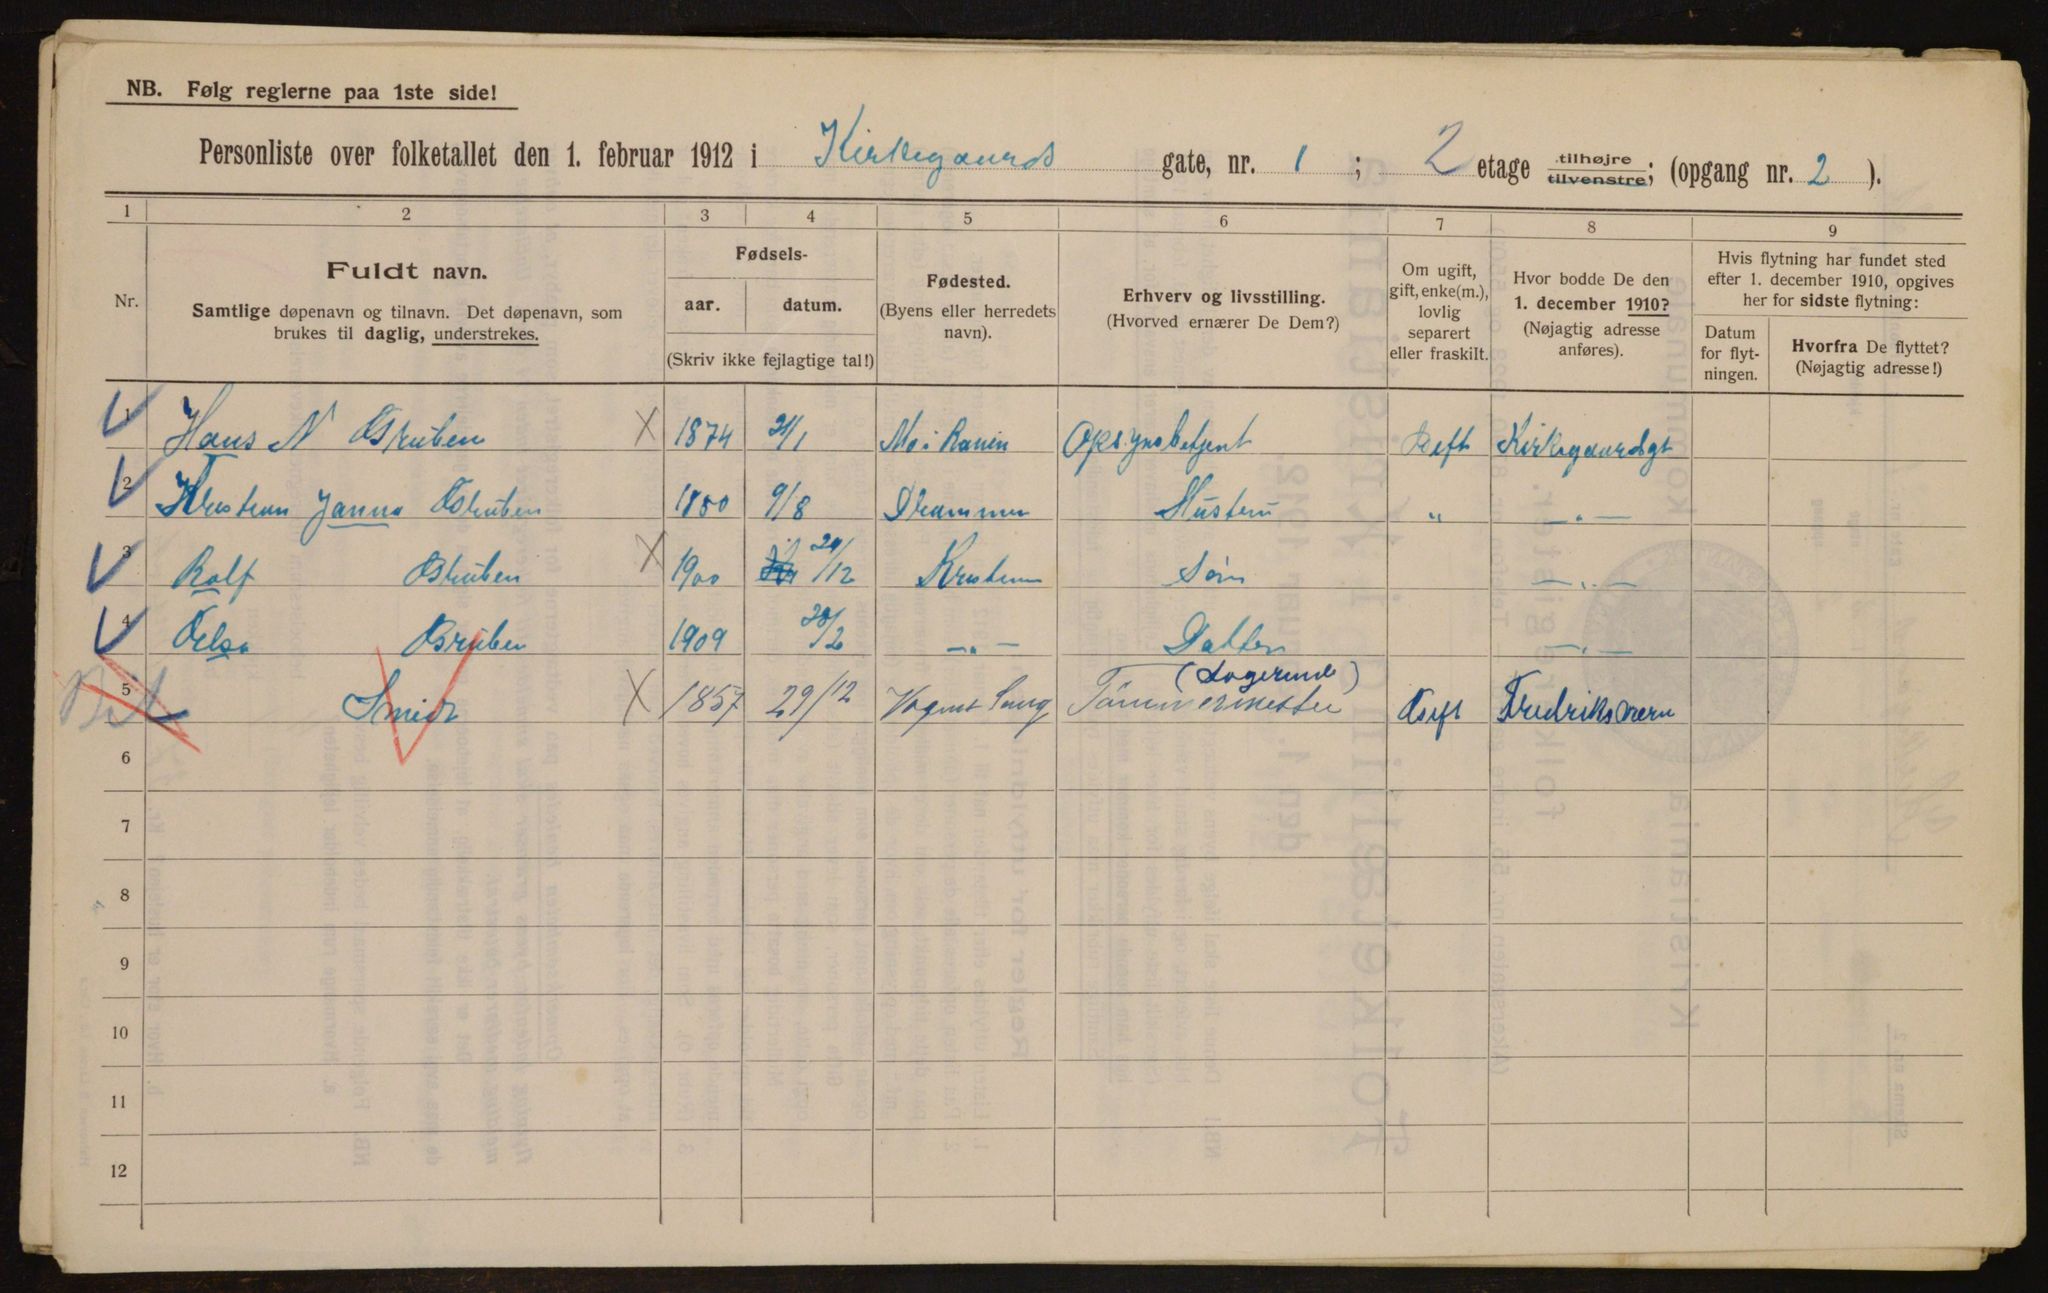 NB. Følg reglerne paa 1ste side!
Personliste over folketallet den 1. februar 1912 i Kirkegaards gate, nr. 1 ; 2 etage tilhøjre tilvenstre; (opgang nr. 2 ).
1 2 3 4 5 6 7 8 9
Nr.
Fuldt navn.
Samtlige døpenavn og tilnavn. Det døpenavn, som
brukes til daglig, understrekes.
Fødsels-
aar. datum.
(Skriv ikke fejlagtige tal!)
Fødested.
(Byens eller herredets
navn).
Erhverv og livsstilling.
(Hvorved ernærer De Dem?)
Om ugift,
gift, enke(m.),
lovlig
separert
eller fraskilt.
Hvor bodde De den
1. december 1910?
(Nøjagtig adresse
anføres).
Hvis flytning har fundet sted
efter 1. december 1910, opgives
her for sidste flytning:
Datum
for flyt-
ningen.
Hvorfra De flyttet?
(Nøjagtig adresse!)
1 Hans N X 1874 Mo i Ranen Opsynsbetjent Kirkegaardsgt
2 Janna 9/8 Drammen Hustru „ — „ —
3 Rolf X 1900 /12 Søn — „ —
4 1909 /2 — „ — Datter — „ —
5 Smidt X 1857 29/12 Tømmermester (Logerende) Gift Fredriksværn
6
7
8
9
10
11
12